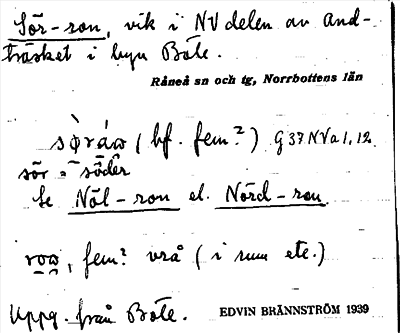 Sör-ron, vik i NV delen av And-
träsket i byn Böle.
Råneå sn och tg, Norrbottens län
(bf. fem.?) G 37 NV a 1, 12.
sör = söder
Se Nöl-ron el. Nörd-ron.
fem? vrå (i rum etc.)
Uppg. från Böle. EDVIN BRÄNNSTRÖM 1939